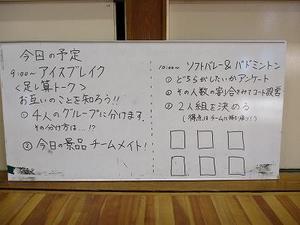 今日の予定
9:00〜 アイスブレイク
<足し算トーク>
お互いのことを知ろう!!
① 4人のグループに分けます。
その分け方は…!?
② 今日の景品 チームメイト!
10:00〜 ソフトバレー&バドミントン
① どちらがしたいかアンケート
② その人数の割合をみてコート設営
③ 2人組を決める
(得点はチームに